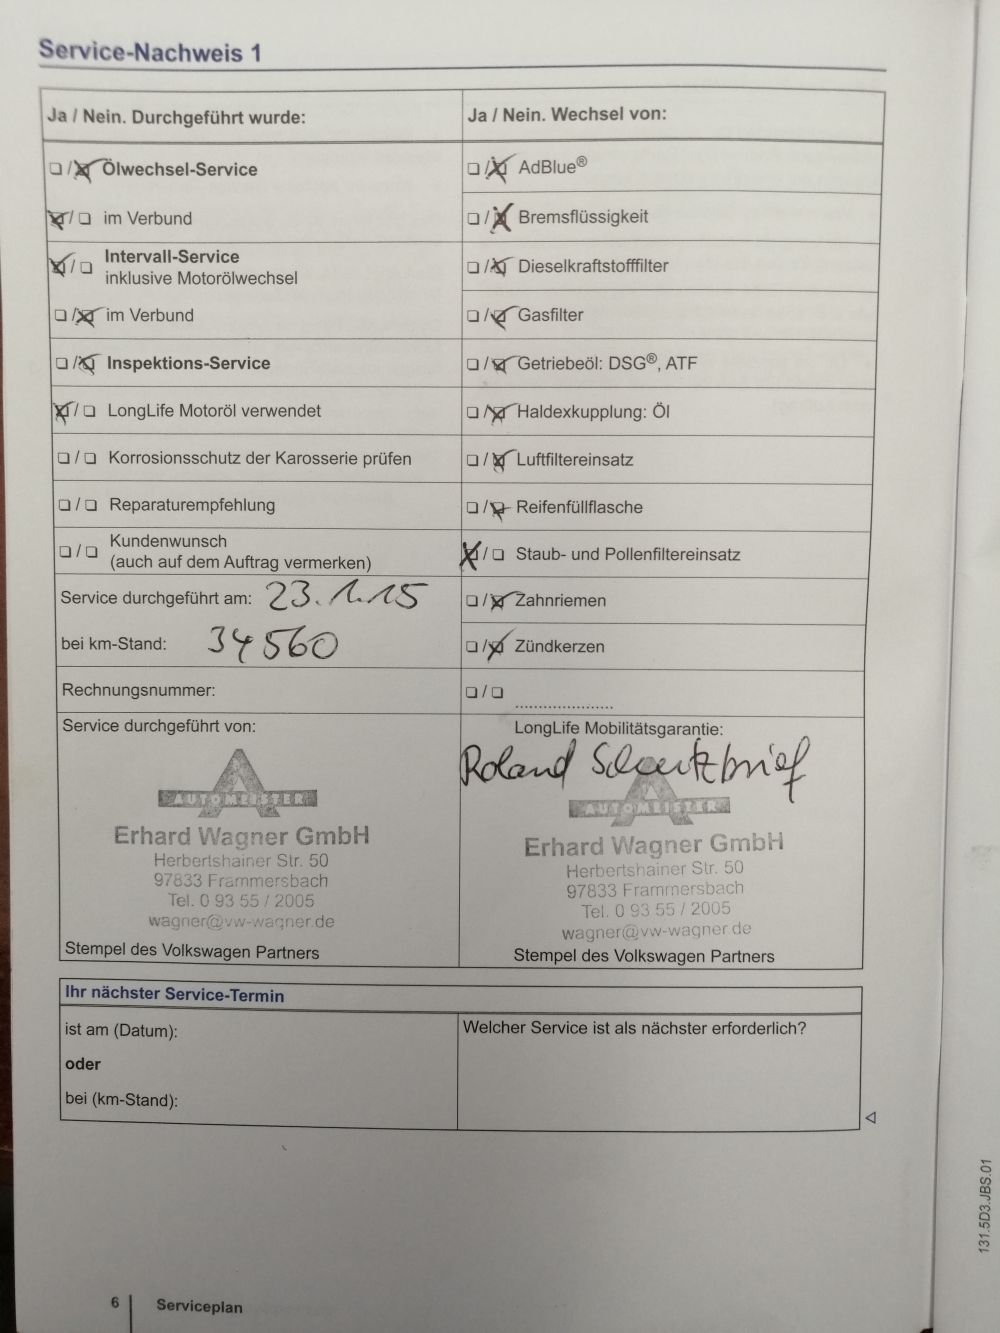 Service-Nachweis 1
Ja / Nein. Durchgeführt wurde:
❑ / ☒ Ölwechsel-Service
☒ / ❑ im Verbund
☒ / ❑ Intervall-Service
inklusive Motorölwechsel
❑ / ☒ im Verbund
❑ / ☒ Inspektions-Service
☒ / ❑ LongLife Motoröl verwendet
❑ / ❑ Korrosionsschutz der Karosserie prüfen
❑ / ❑ Reparaturempfehlung
❑ / ❑ Kundenwunsch
(auch auf dem Auftrag vermerken)
Service durchgeführt am: 23.1.15
bei km-Stand: 34560
Rechnungsnummer:
Service durchgeführt von:
AUTOMEISTER
Erhard Wagner GmbH
Herbertshainer Str. 50
97833 Frammersbach
Tel. 0 93 55 / 2005
wagner@vw-wagner.de
Stempel des Volkswagen Partners
Ja / Nein. Wechsel von:
❑ / ☒ AdBlue®
❑ / ☒ Bremsflüssigkeit
❑ / ☒ Dieselkraftstofffilter
❑ / ☒ Gasfilter
❑ / ☒ Getriebeöl: DSG®, ATF
❑ / ☒ Haldexkupplung: Öl
❑ / ☒ Luftfiltereinsatz
❑ / ☒ Reifenfüllflasche
☒ / ❑ Staub- und Pollenfiltereinsatz
❑ / ☒ Zahnriemen
❑ / ☒ Zündkerzen
❑ / ❑ .....................
LongLife Mobilitätsgarantie:
Roland Schutzbrief
AUTOMEISTER
Erhard Wagner GmbH
Herbertshainer Str. 50
97833 Frammersbach
Tel. 0 93 55 / 2005
wagner@vw-wagner.de
Stempel des Volkswagen Partners
Ihr nächster Service-Termin
ist am (Datum):
oder
bei (km-Stand):
Welcher Service ist als nächster erforderlich?
131.5D3.JBS.01
6 Serviceplan